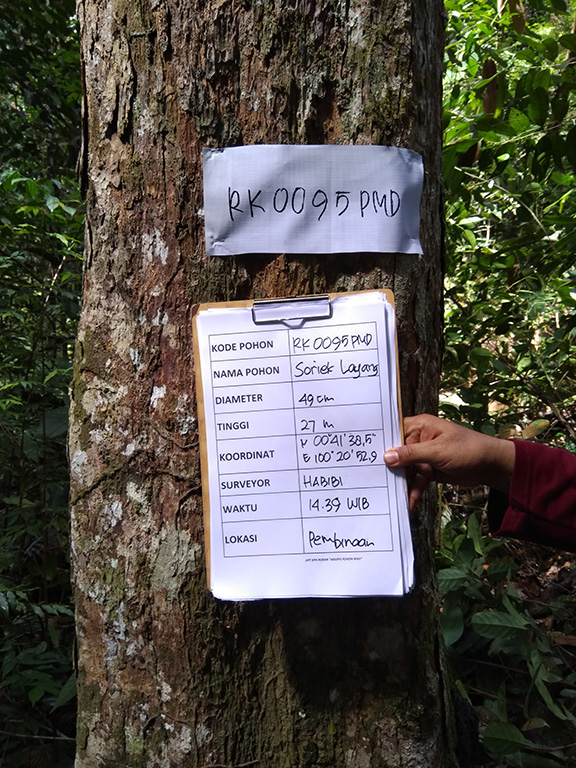 RK 0095 PMD
KODE POHON RK 0095 PMD
NAMA POHON Soriek Layang
DIAMETER 49 cm
TINGGI 27 m
KOORDINAT N 00°41'38,5"
E 100°20'52,9
SURVEYOR HABIBI
WAKTU 14.39 WIB
LOKASI Pembinaan